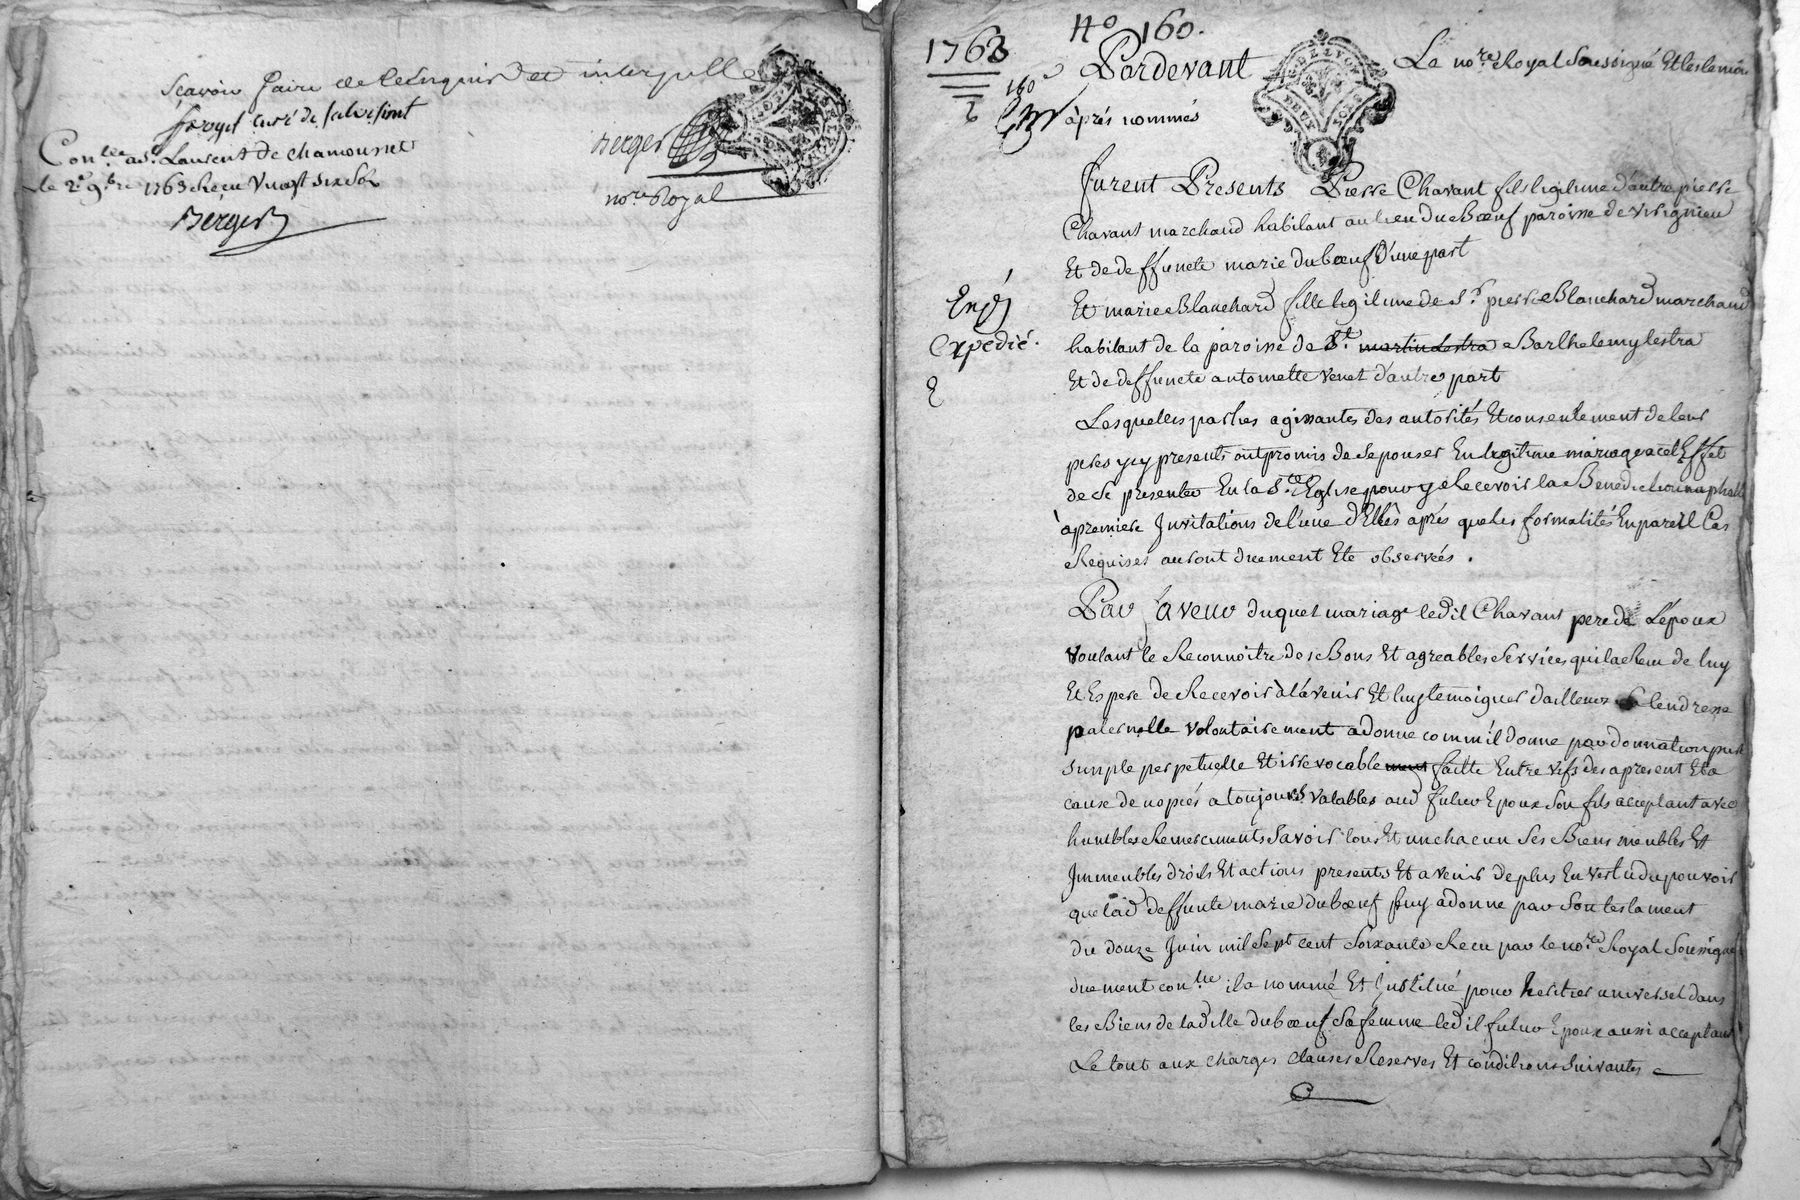 Scavoir faire de ce Enquis et interpellé
froget curé de salvisinet
Con.lle a S.t Laurent de chamousset
le 2.e 9.bre 1763 Recu vingt six sols
Berger
Berger
no.re Royal
1763
N.o 160.
160
Pardevant Le no.re Royal Soussigné Et les témoins
après nommés
furent Presents Pierre Chavant fils legitime d'autre pierre
Chavant marchand habitant au lieu du Bœuf paroisse de virignieu
Et de deffuncte marie duboeuf D'une part
Et marie Blanchard fille legitime de S.r pierre Blanchard marchand
habitant de la paroisse de S.t martin Lestra Barthelemy lestra
Et de deffuncte antoinette venet d'autre part
Exp
Expedié.
Lesquelles parties agissantes des autorités Et consentement de leur
peres ycy presents ont promis de Sepouser En legitime mariage a cet Effet
de Se presenter En la S.te Eglise pour y Recevoir la Benediction nuptiale
à premiere Invitations de l'une d'Elles après que les formalités En pareil Cas
Requises auront duement Eté observées.
Par faveur duquel mariage ledit Chavant pere de L'époux
voulant le Reconnoitre des Bons Et agreables Services quil a Recu de luy
Et Espere de Recevoir à l'avenir Et luy temoigner d'ailleurs Sa tendresse
paternelle volontairement a donné comm'il donne par donnation pure
simple perpetuelle Et irrevocablement faitte Entre vifs des apresent Et a
cause de nopces a toujours valables aud futur Epoux Son fils acceptant avec
humbles Remerciments Savoir tous Et un chacun Ses Biens meubles Et
Immeubles droits Et actions presents Et avenir de plus En vertu du pouvoir
que lad deffunte marie duboeuf luy a donné par Son testament
du douze Juin mil Sept cent Soixante Recu par le no.re Royal Soussigné
duement con.llé il a nommé Et Institué pour heritier universel dans
les Biens de ladille duboeuf Sa femme ledit futur Epoux aussi acceptant
Le tout aux charges clauses Reserves Et conditions Suivantes